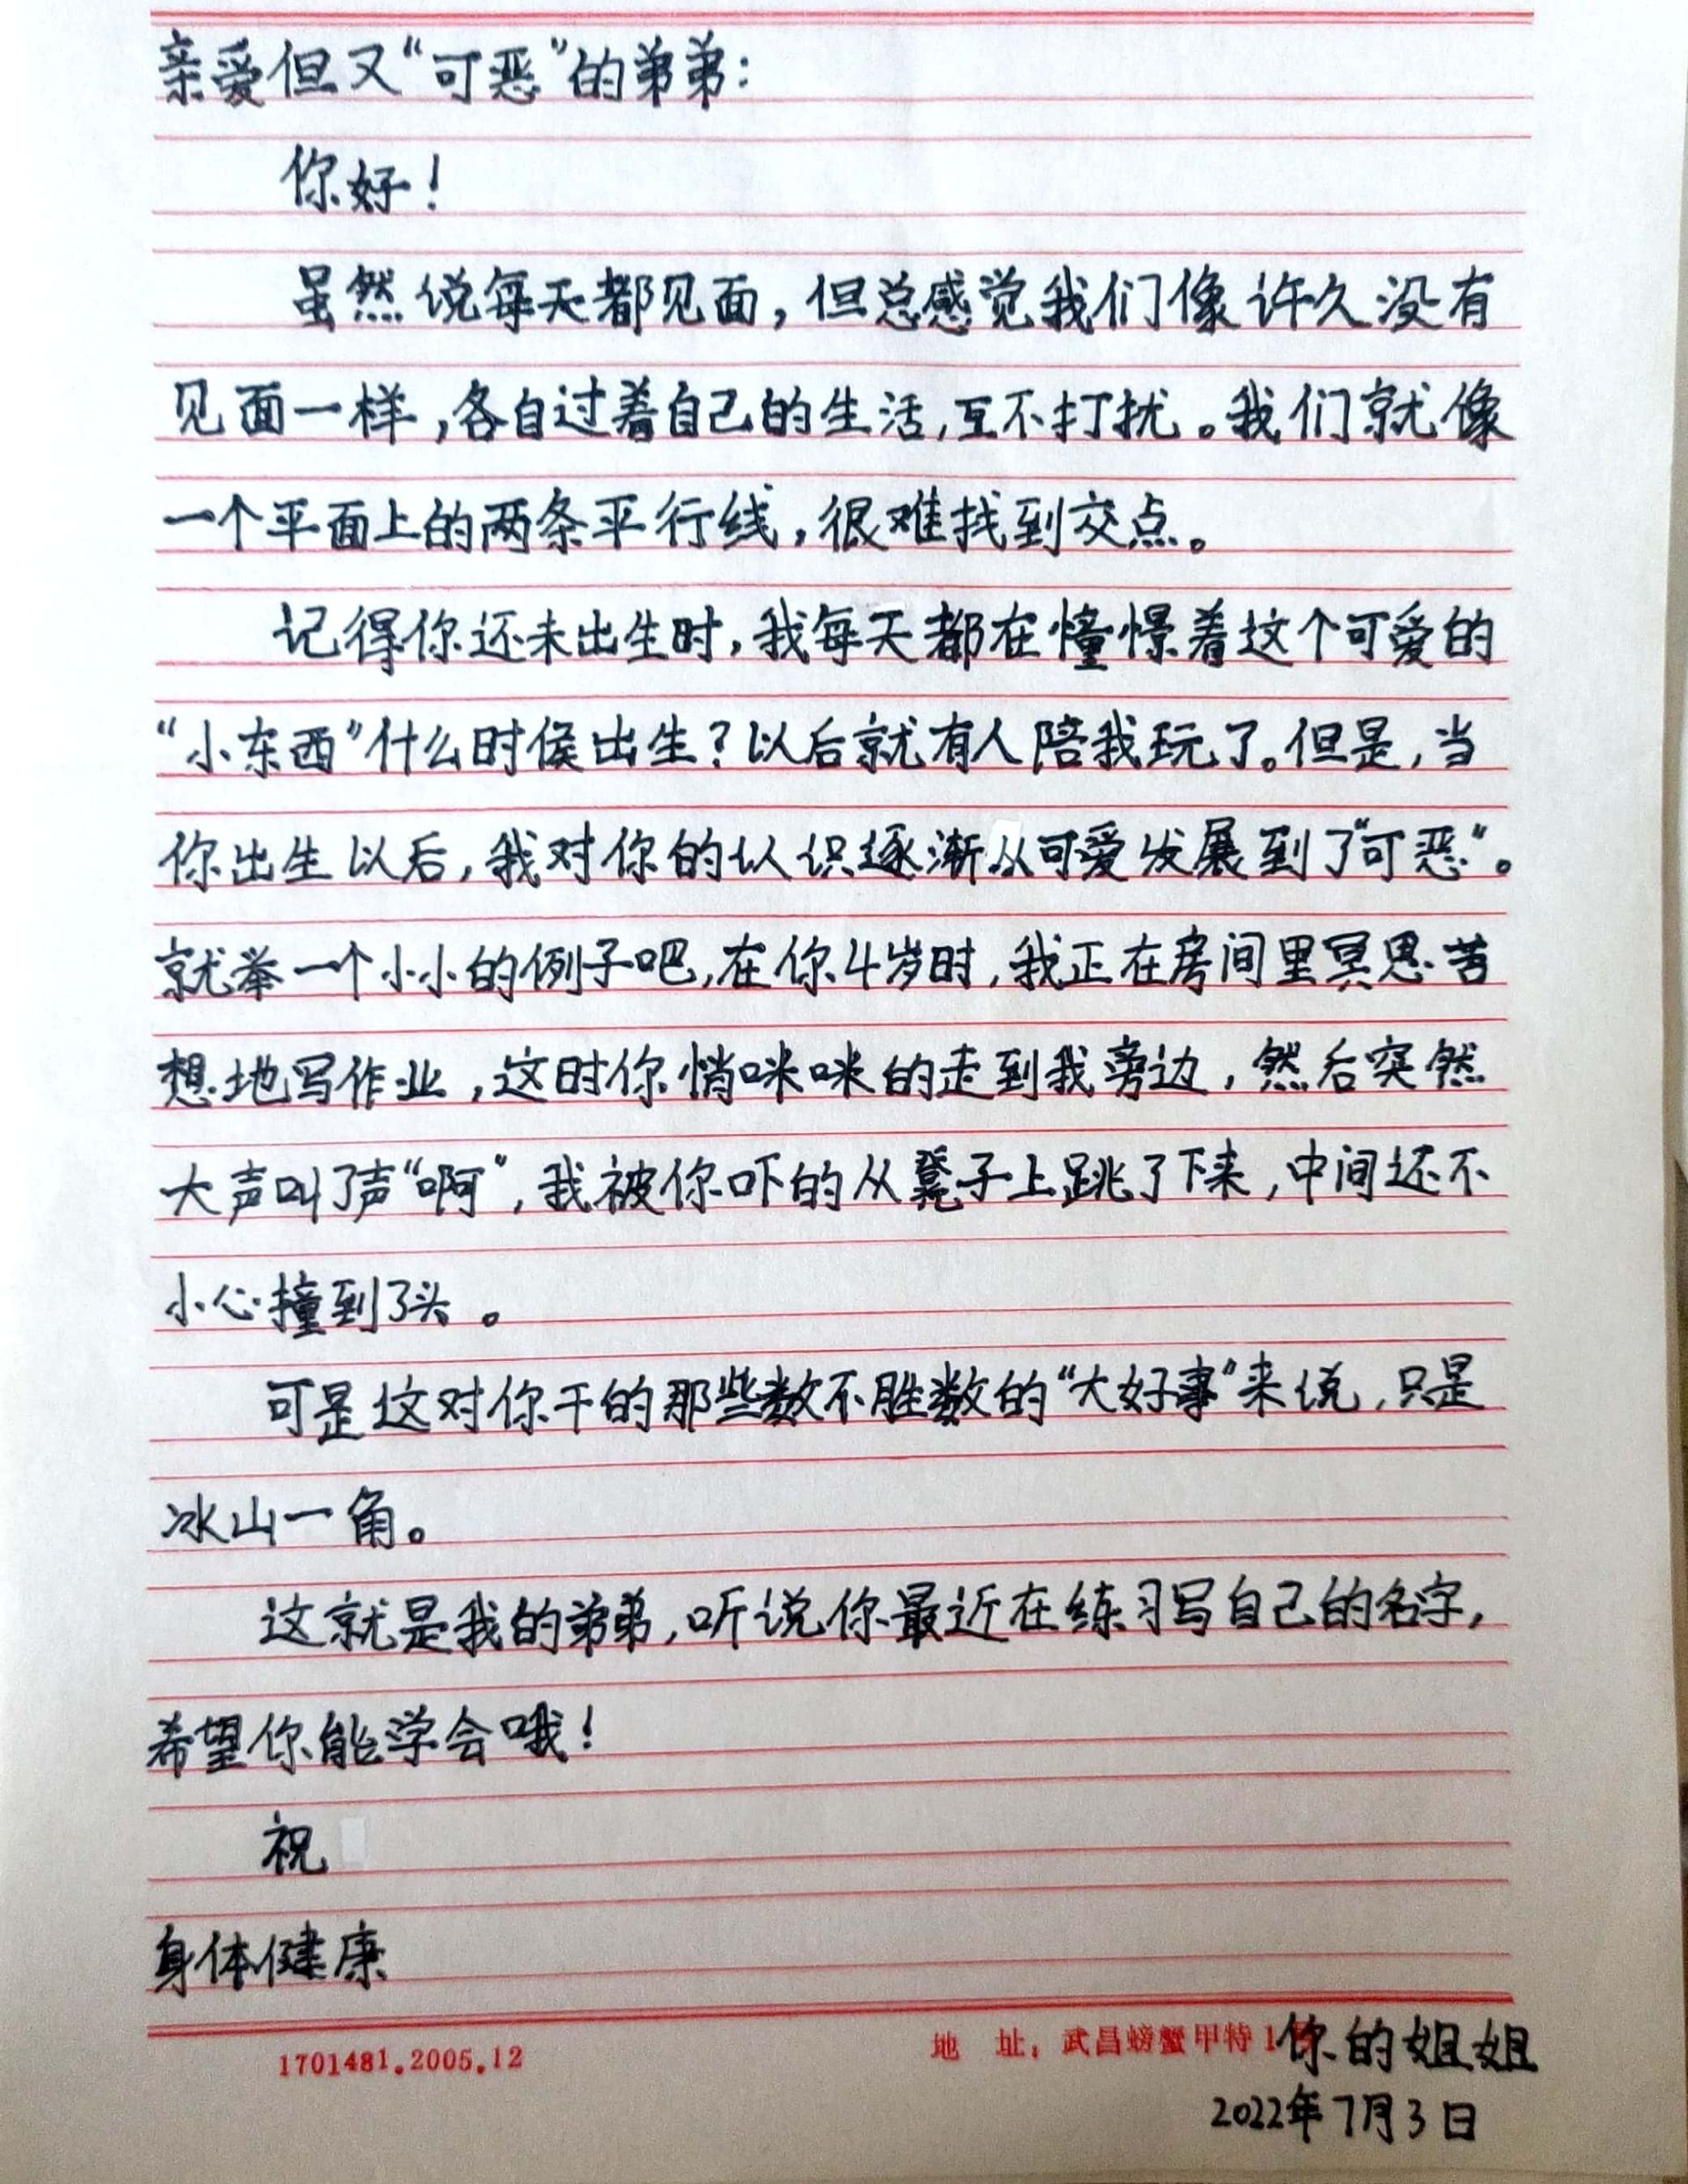 亲爱但又“可恶”的弟弟：
你好！
虽然说每天都见面，但总感觉我们像许久没有
见面一样，各自过着自己的生活，互不打扰。我们就像
一个平面上的两条平行线，很难找到交点。
记得你还未出生时，我每天都在憧憬着这个可爱的
“小东西”什么时侯出生？以后就有人陪我玩了。但是，当
你出生以后，我对你的认识逐渐从可爱发展到了“可恶”。
就举一个小小的例子吧，在你4岁时，我正在房间里冥思苦
想地写作业，这时你悄咪咪的走到我旁边，然后突然
大声叫了声“啊”，我被你吓的从凳子上跳了下来，中间还不
小心撞到了头。
可是这对你干的那些数不胜数的“大好事”来说，只是
冰山一角。
这就是我的弟弟，听说你最近在练习写自己的名字，
希望你能学会哦！
祝
身体健康
1701481.2005.12 地 址：武昌螃蟹甲特1 你的姐姐
2022年7月3日